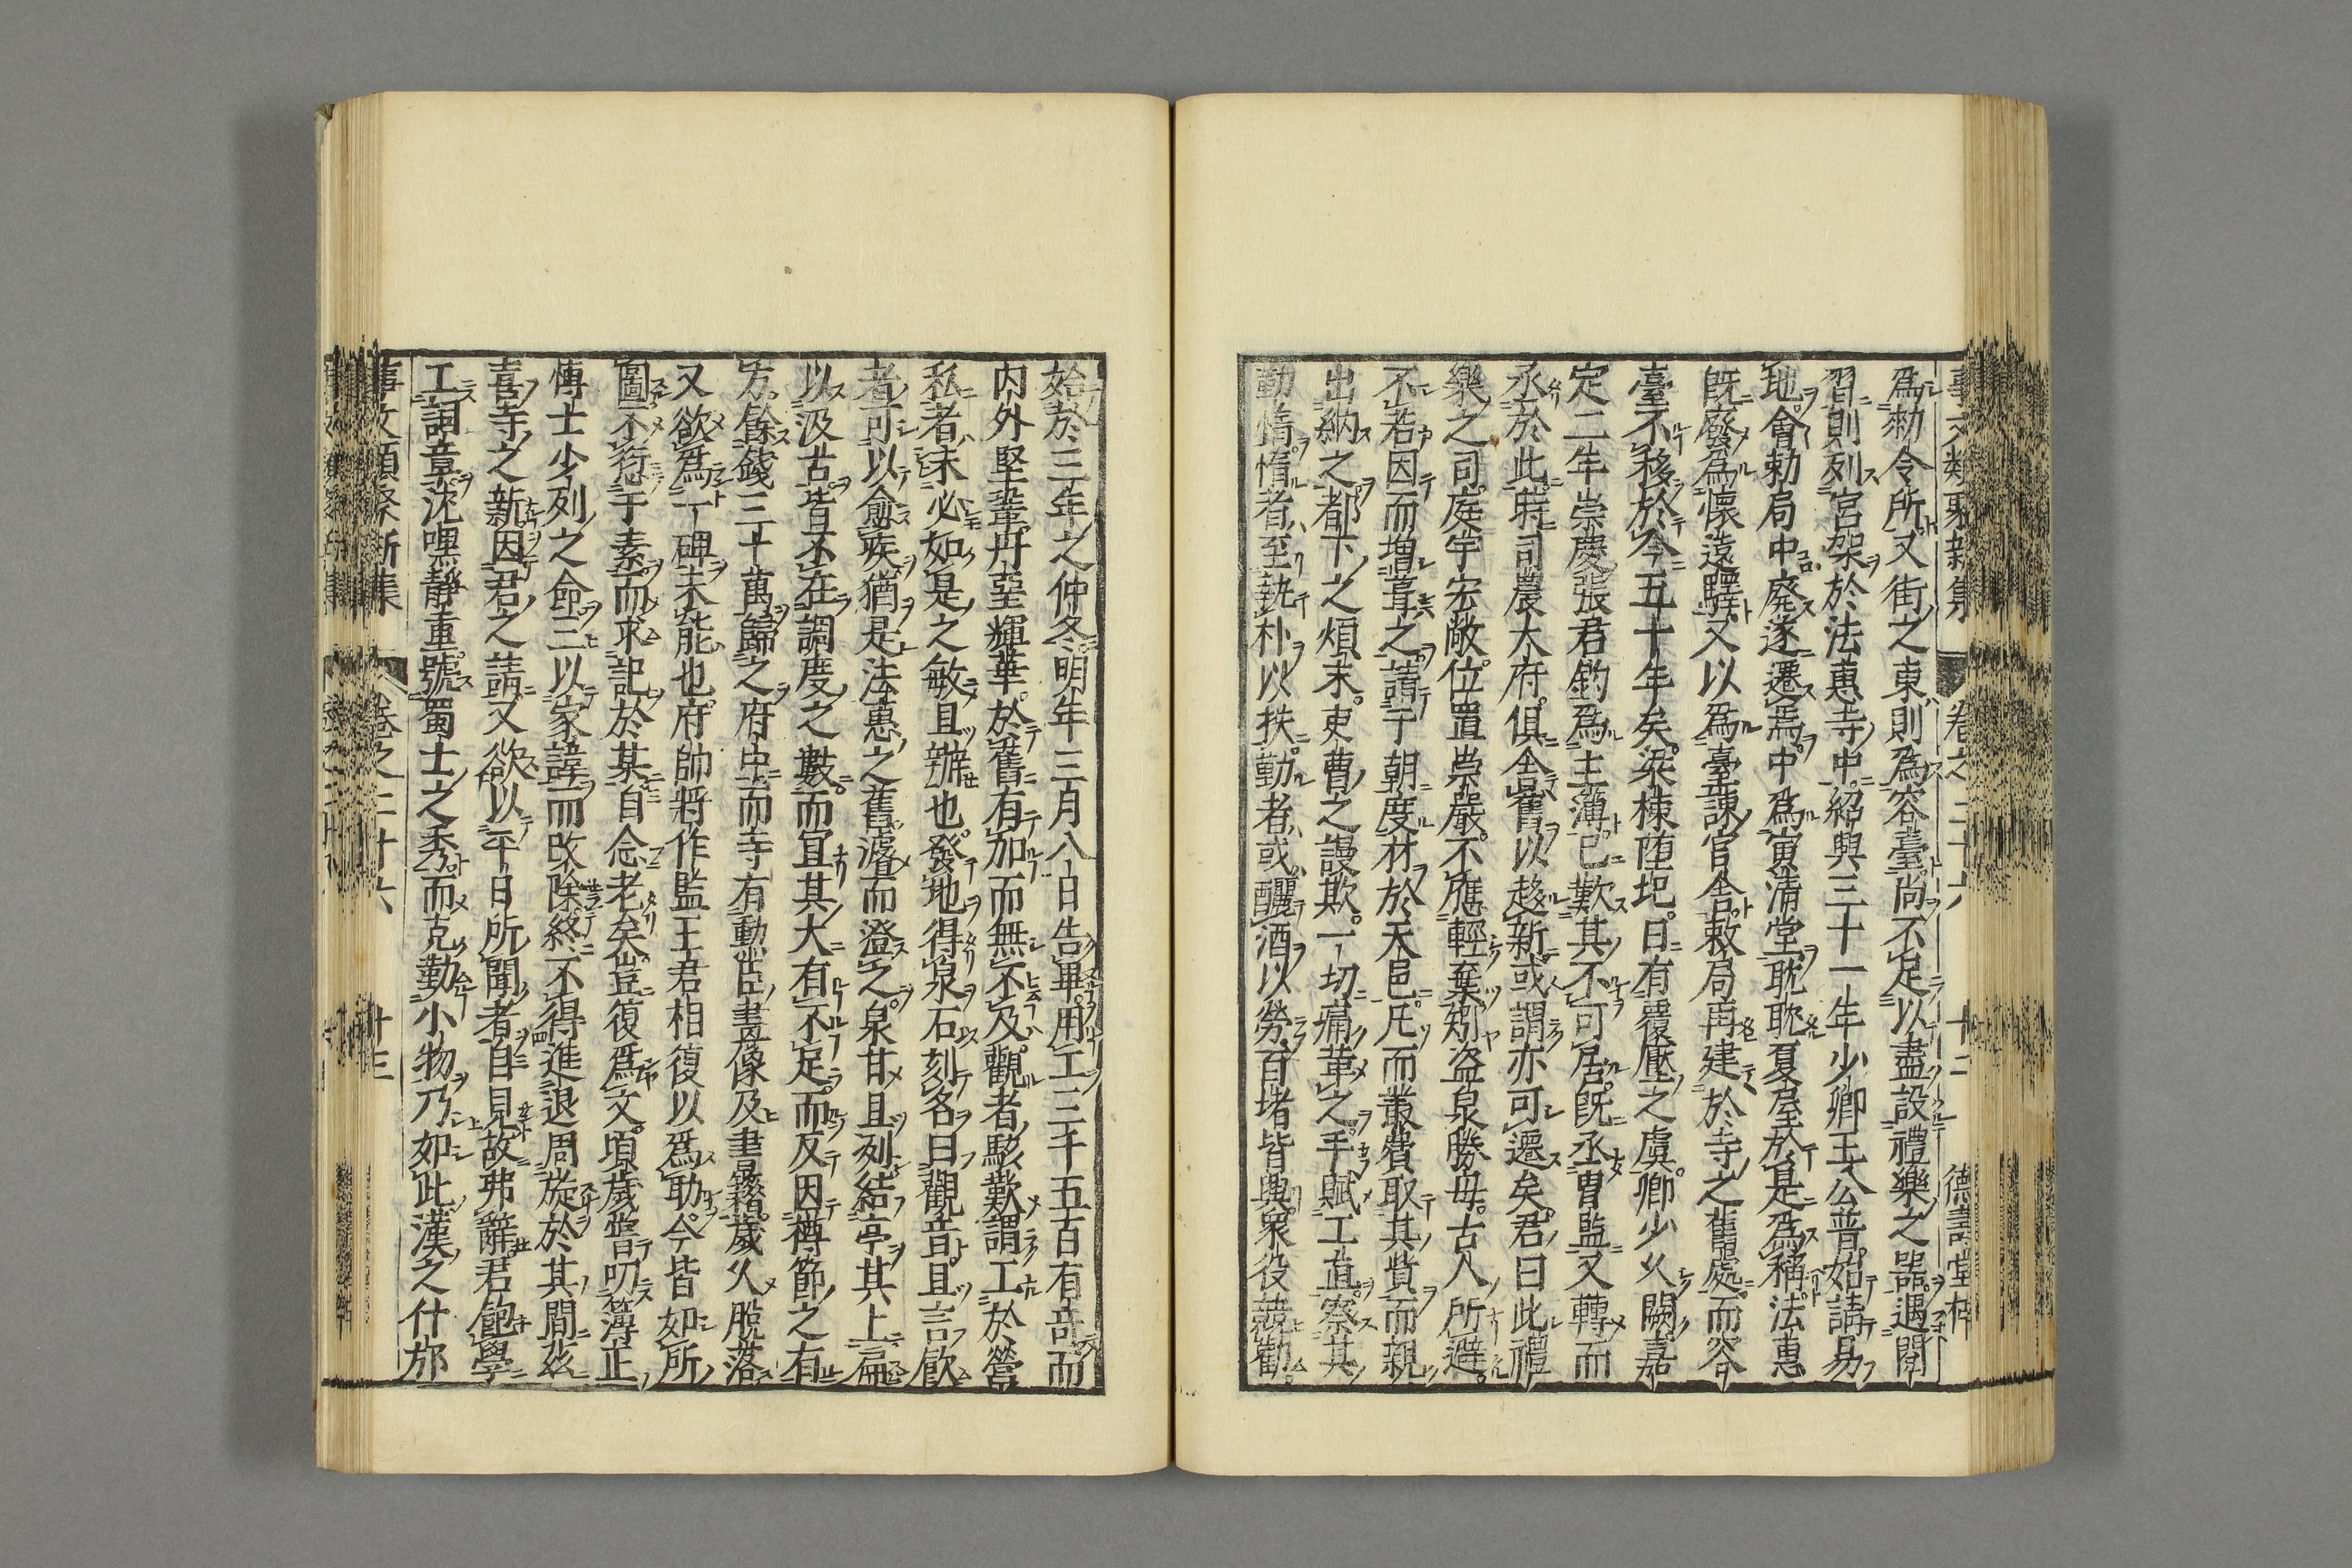 事文類聚新集 卷之二十六 十二 德壽堂梓
爲勑令所又街之東則爲容臺尚不足以盡設禮樂之器遇閱
習則列宮架於法惠寺中紹興三十一年少卿王公普始請易
地會勅局中廃遂遷焉中爲寅淸堂耽耽夏屋於是爲稱法惠
旣廢爲懷遠驛又以爲臺諫官舍敕局再建於寺之舊處而容
臺不移於今五十年矣梁棟陊圯日有覆壓之虞卿少久闕嘉
定二年崇慶張君鈞爲主簿已歎其不可居旣丞曺監又轉而
丞於此時司農太府俱舍舊以趍新或謂亦可遷矣君曰此禮
樂之司庭宇宏敞位置崇嚴不應輕棄矧盗泉勝母古人所避
不若因而增葺之請于朝度材於天邑凡而叢費取其貲而親
出納之都下之煩末吏曹之謾欺一切痛革之手賦工直察其
勤惰惰者至執朴以扶勤者或釃酒以勞百堵皆興衆役競勸
始於三年之仲冬明年三月八日告畢用工三千五百有奇而
內外堅鞏丹堊輝華於舊有加而無不及觀者駭歎謂工於營
私者未必如是之敏且辦也發地得泉石刻名曰觀音且言飮
者可以愈疾猶是法惠之舊濬而澄之泉甘且列結亭其上扁
以汲古皆不在調度之數而冝其大有不足而反因撙節之有
方餘錢三十萬歸之府史而寺有勳臣畫像及書籍歲久脫落
又欲爲一碑未能也府帥將作監王君相復以爲助今皆如所
圖不愆于素而求記於某自念老矣豈復爲文頃歲嘗叨簿正
博士少列之命三以家諱而改除終不得進退周旋於其間玆
喜寺之新因君之請又欲以平日所聞者自見故弗辭君飽學
工詞章沈嘿靜重號蜀士之秀而克勤小物乃如此漢之什邡
事文類聚新集 卷之二十六 十三